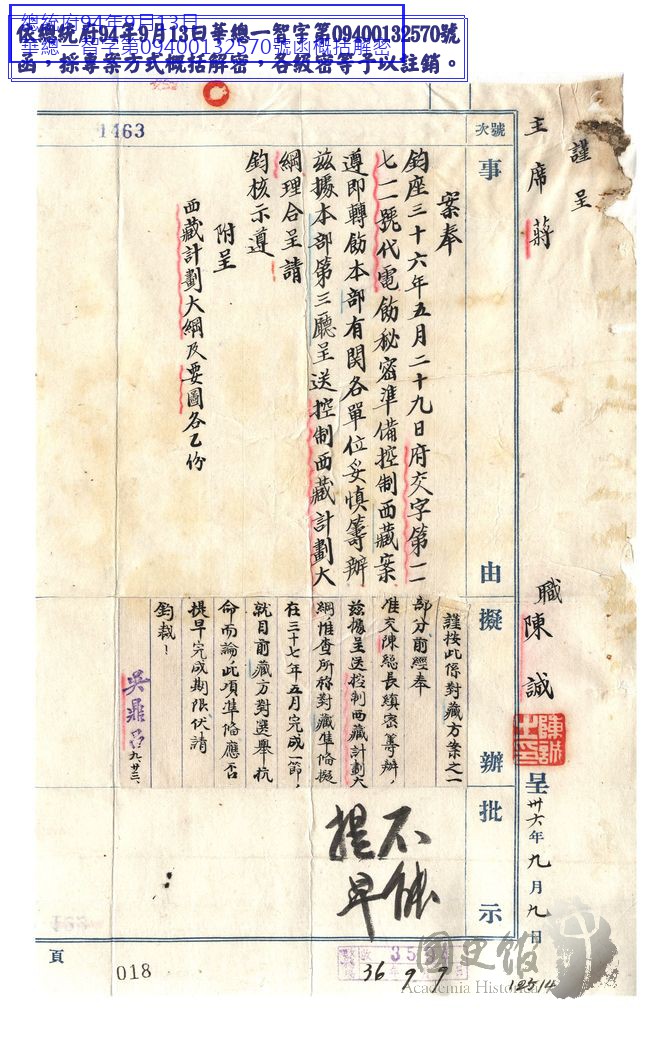 總統府94年9月13日
華總一智字第09400132570號函概括解密
依總統府94年9月13日華總一智字第09400132570號
函，採專案方式概括解密，各級密等予以註銷。
謹呈
主席 蔣
職 陳誠 呈 卅六年九月九日
陳誠之印
號次
事由
擬辦
批示
1463
案奉
鈞座三十六年五月二十九日府交字第一一
七二號代電飭秘密準備控制西藏案
遵即轉飭本部有関各單位妥慎籌辦
茲據本部第三廳呈送控制西藏計劃大
綱理合呈請
鈞核示遵
附呈
西藏計劃大綱及要圖各乙份
謹按此係對藏方案之一
部分前經奉
准交陳總長縝密籌辦，
茲據呈送控制西藏計劃大
綱惟查所称對藏準俻擬
在三十七年五月完成一節，
就目前藏方對選舉抗
命而論此項準俻應否
提早完成期限伏請
鈞裁！
吳鼎昌 九、廿三、
不能
提早
頁
018
36 9 9
12514
國史館
Academia Historica